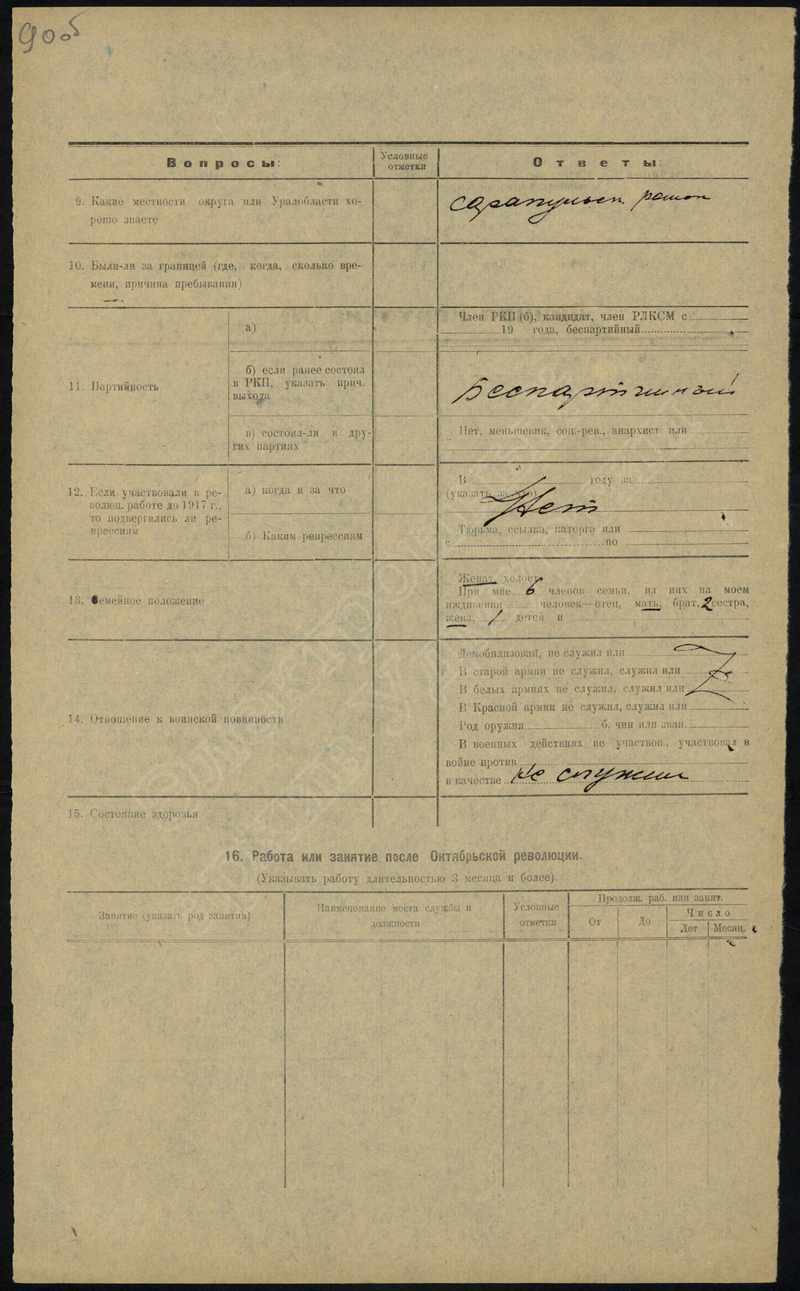 906
Вопросы:
Условные
отметки
Ответы:
9. Какие местности округа или Уралобласти хо-
рошо знаете
Сарапульск. район
10. Были-ли за границей (где, когда, сколько вре-
мени, причина пребывания)
11. Партийность
а)
Член РКП(б), кандидат, член РЛКСМ с
19 года, беспартийный
б) если ранее состоял
в РКП, указать прич.
выхода
Беспартийный
в) состоял-ли в дру-
гих партиях
Нет, меньшевик, соц.-рев., анархист или
12. Если участвовали в ре-
волюц. работе до 1917 г.,
то подвергались ли ре-
прессиям
а) когда и за что
В году за
(указать
Нет
б) Каким репрессиям
Тюрьма, ссылка, каторга или
с по
13. Семейное положение
Женат, холост
При мне 6 членов семьи, из них на моем
иждивении человек—отец, мать, брат, 2 сестра,
жена, 1 детей и
14. Отношение к воинской повинности
Демобилизован, не служил или
В старой армии не служил, служил или
В белых армиях не служил, служил или
В Красной армии не служил, служил или
Род оружия б. чин или зван.
В военных действиях не участвов., участвовал в
войне против
в качестве не служил
15. Состояние здоровья
16. Работа или занятие после Октябрьской революции.
(Указывать работу длительностью 3 месяца и более).
Занятие (указат. род занятия)
Наименование места службы и
должности
Условные
отметки
Продолж. раб. или занят.
От
До
Число
Лет
Месяц.